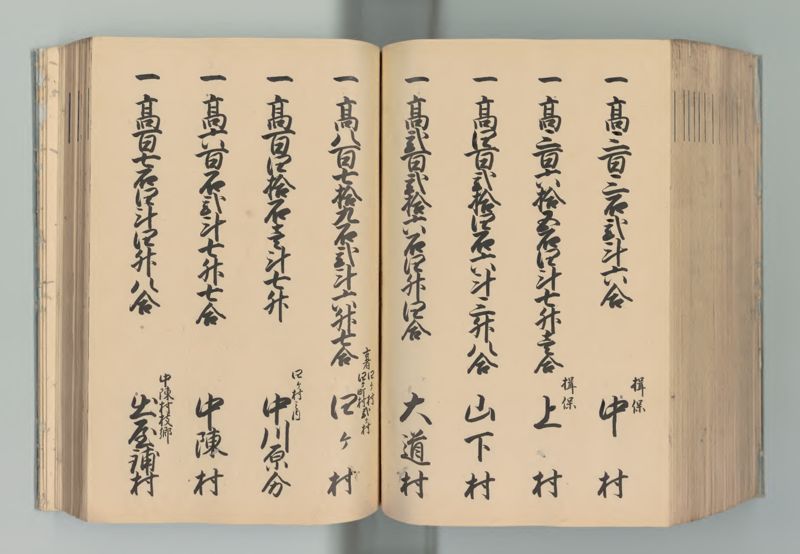 一 高三百三石弐斗六合 揖保 中村
一 高三百六拾五石四斗七升壱合 揖保 上村
一 高四百弐拾四石六斗三升八合 山下村
一 高弐百弐拾六石四升四合 大道村
一 高八百七拾九石弐斗六升七合 古者四ヶ村四ヶ町村弐ヶ村 四ヶ村
一 高百四拾石壱斗七升 四ヶ村之内 中川原分
一 高六百石弐斗七升七合 中陳村
一 高百七石四斗四升八合 中陳村枝郷 出屋鋪村